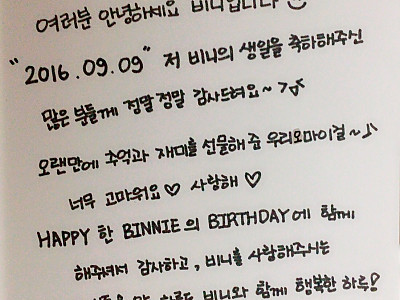 여러분 안녕하세요 비니입니다
"2016.09.09" 저 비니의 생일을 축하해주신
많은 분들께 정말정말 감사드려요~
오랜만에 추억과 재미를 선물해 준 우리오마이걸~♪
너무 고마워요♡ 사랑해♡
HAPPY 한 BINNIE의 BIRTHDAY에 함께
해주셔서 감사하고, 비니를 사랑해주시는
비니와 함께 행복한 하루!